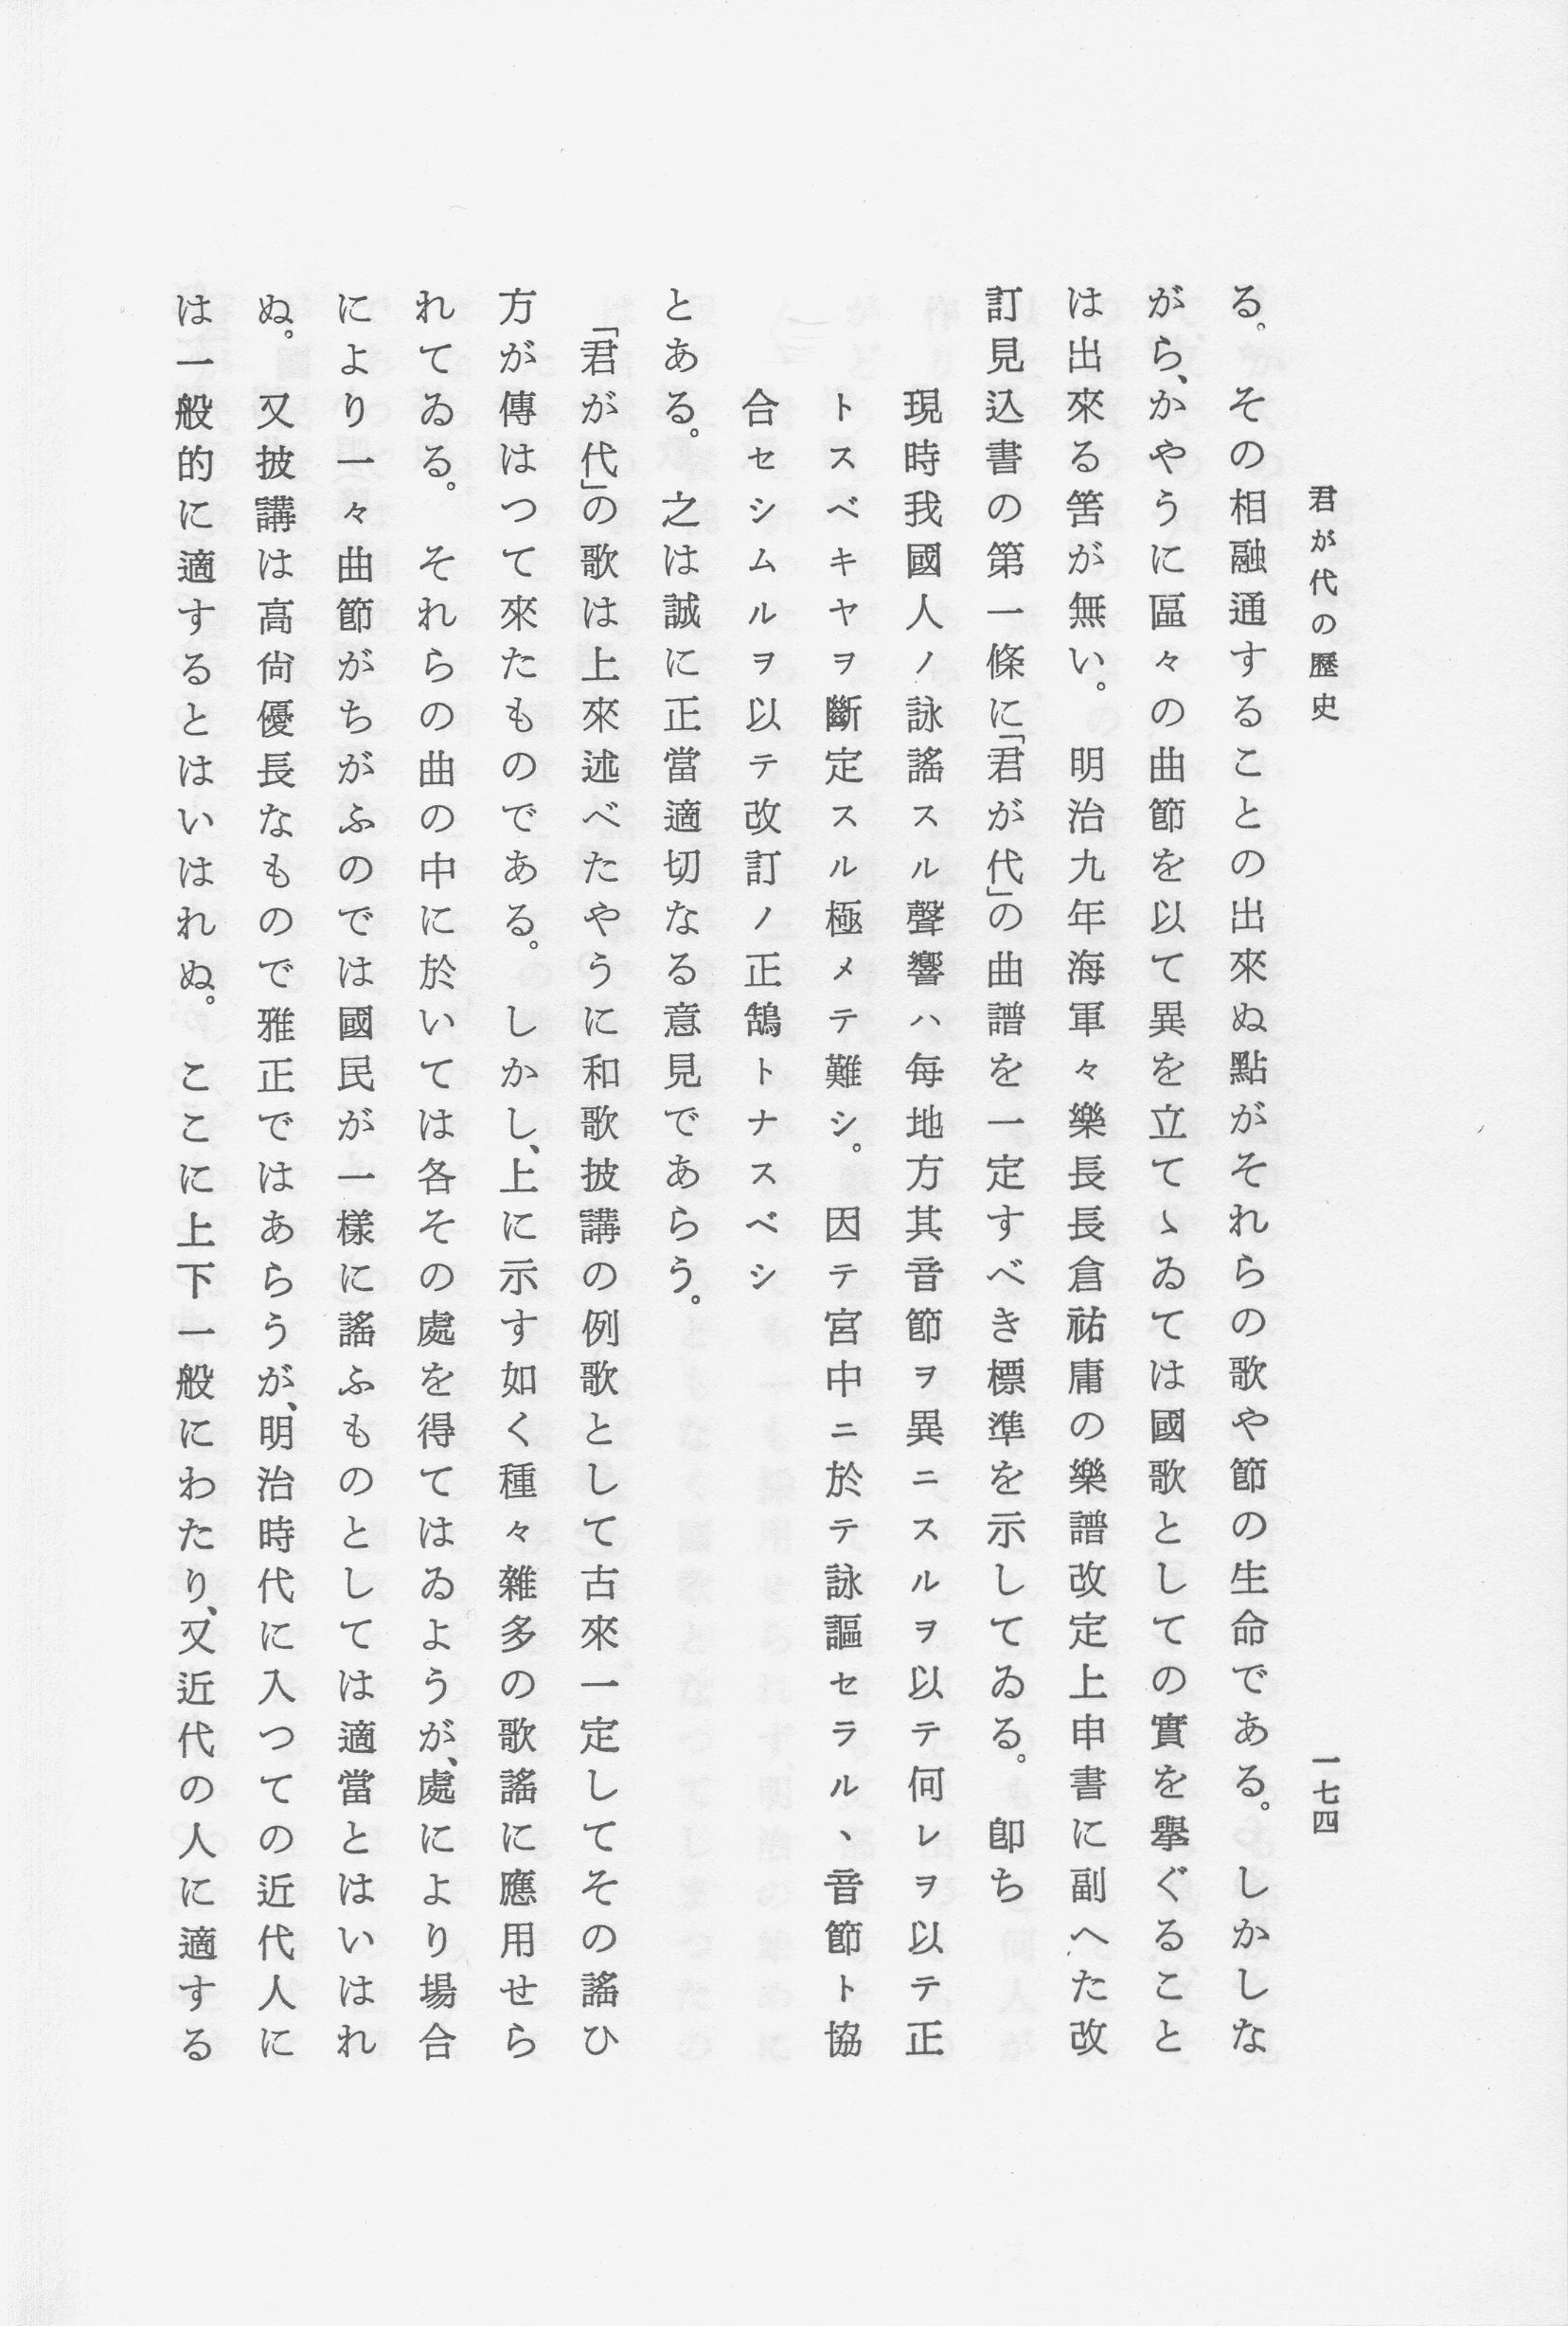 君が代の歷史
一七四
る。　その相融通することの出來ぬ點がそれらの歌や節の生命である。　しかしな
がら、かやうに區々の曲節を以て異を立てゝゐては國歌としての實を擧ぐること
は出來る筈が無い。　明治九年海軍々樂長長倉祐庸の樂譜改定上申書に副へた改
訂見込書の第一條に「君が代」の曲譜を一定すべき標準を示してゐる。　卽ち
現時我國人ノ詠謠スル聲響ハ每地方其音節ヲ異ニスルヲ以テ何レヲ以テ正
トスベキヤヲ斷定スル極メテ難シ。　因テ宮中ニ於テ詠謳セラルヽ音節ト協
合セシムルヲ以テ改訂ノ正鵠トナスベシ
とある。　之は誠に正當適切なる意見であらう。
「君が代」の歌は上來述べたやうに和歌披講の例歌として古來一定してその謠ひ
方が傳はつて來たものである。　しかし、上に示す如く種々雜多の歌謠に應用せら
れてゐる。　それらの曲の中に於いては各その處を得てはゐようが、處により場合
により一々曲節がちがふのでは國民が一樣に謠ふものとしては適當とはいはれ
ぬ。　又披講は高尙優長なもので雅正ではあらうが、明治時代に入つての近代人に
は一般的に適するとはいはれぬ。　ここに上下一般にわたり、又近代の人に適する